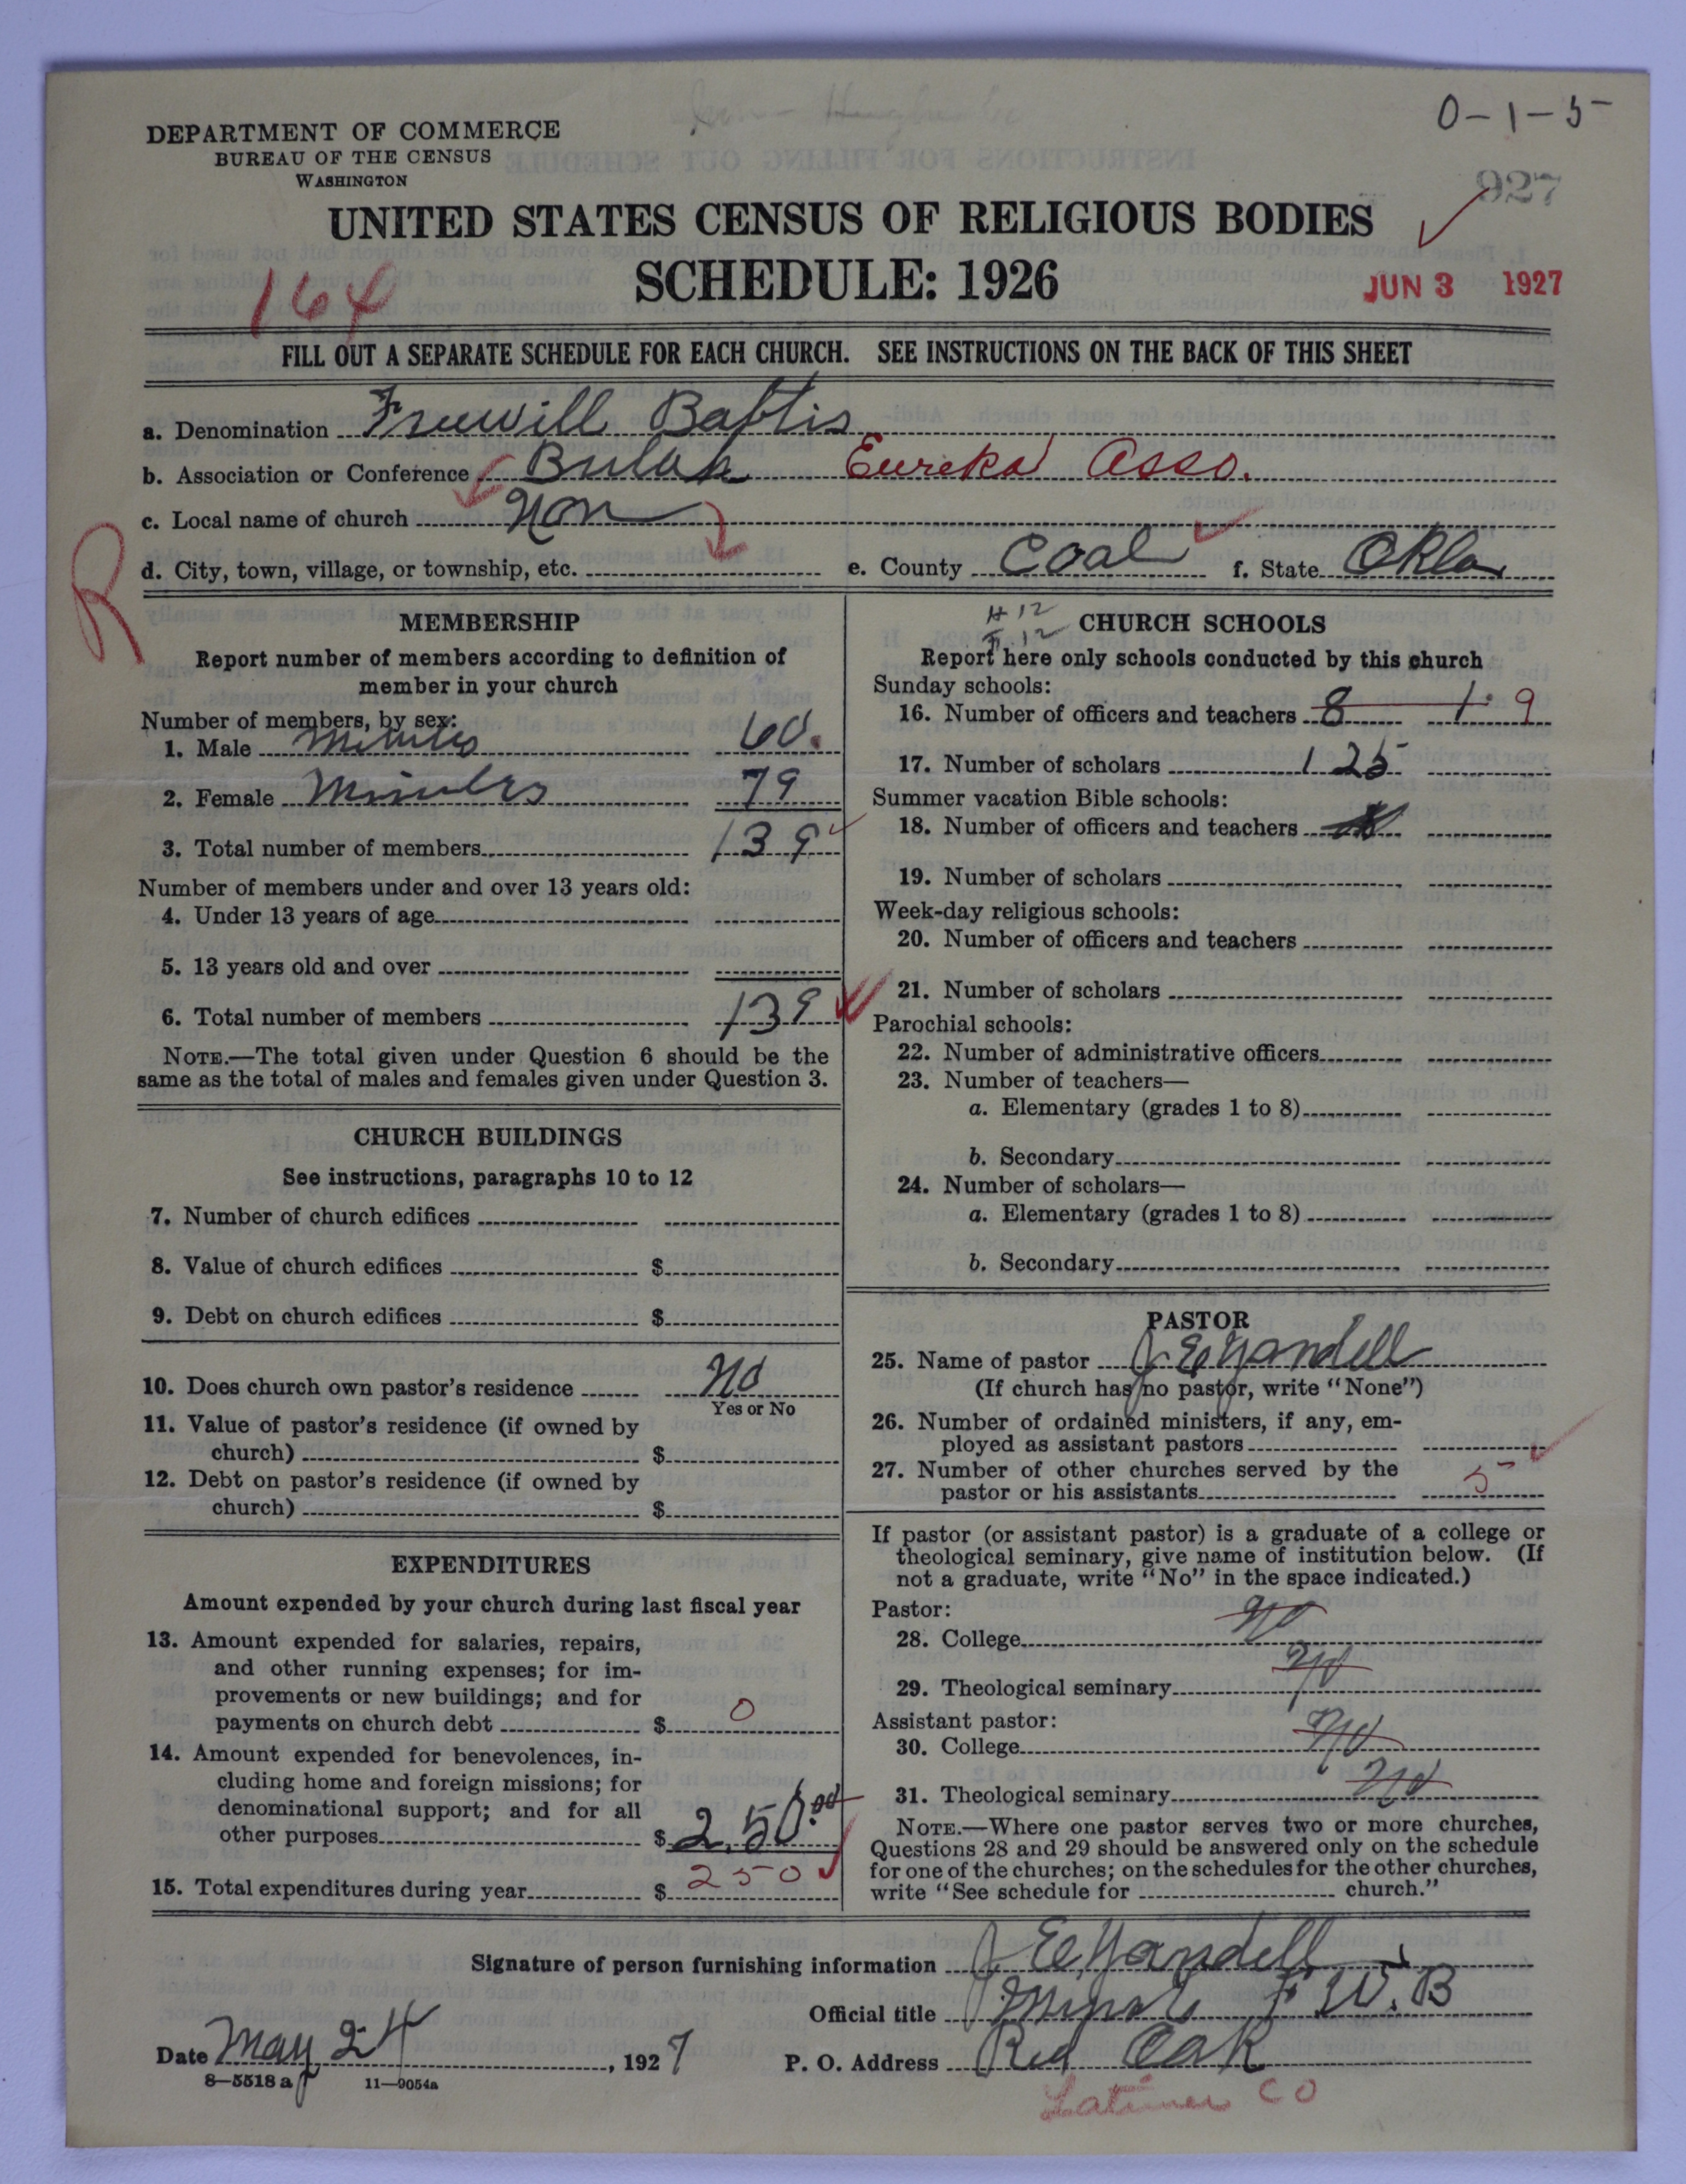 0-1-5
DEPARTMENT OF COMMERCE
BUREAU OF THE CENSUS
WASHINGTON
927
UNITED STATES CENSUS OF RELIGIOUS BODIES
SCHEDULE: 1926
164
JUN 3 1927
FILL OUT A SEPARATE SCHEDULE FOR EACH CHURCH. SEE INSTRUCTIONS ON THE BACK OF THIS SHEET
a. Denomination Freewill Baptis
b. Association or Conference Eureka Asso.
c. Local name of church Non
d. City, town, village, or township, etc. e. County Coal f. State Okla
R
MEMBERSHIP
Report number of members according to definition of
member in your church
Number of members, by sex:
1. Male 60.
2. Female 79
3. Total number of members 139
Number of members under and over 13 years old:
4. Under 13 years of age
5. 13 years old and over
6. Total number of members 139
NOTE.—The total given under Question 6 should be the
same as the total of males and females given under Question 3.
CHURCH BUILDINGS
See instructions, paragraphs 10 to 12
7. Number of church edifices
8. Value of church edifices $
9. Debt on church edifices $
10. Does church own pastor's residence No
Yes or No
11. Value of pastor's residence (if owned by
church) $
12. Debt on pastor's residence (if owned by
church) $
EXPENDITURES
Amount expended by your church during last fiscal year
13. Amount expended for salaries, repairs,
and other running expenses; for im-
provements or new buildings; and for
payments on church debt $ 0
14. Amount expended for benevolences, in-
cluding home and foreign missions; for
denominational support; and for all
other purposes $ 250.00
15. Total expenditures during year $ 250
12
12
CHURCH SCHOOLS
Report here only schools conducted by this church
Sunday schools:
16. Number of officers and teachers 8 1. 9
17. Number of scholars 125
Summer vacation Bible schools:
18. Number of officers and teachers
19. Number of scholars
Week-day religious schools:
20. Number of officers and teachers
21. Number of scholars
Parochial schools:
22. Number of administrative officers
23. Number of teachers—
a. Elementary (grades 1 to 8)
b. Secondary
24. Number of scholars—
a. Elementary (grades 1 to 8)
b. Secondary
PASTOR
25. Name of pastor J E Yandell
(If church has no pastor, write "None")
26. Number of ordained ministers, if any, em-
ployed as assistant pastors
27. Number of other churches served by the
pastor or his assistants 5
If pastor (or assistant pastor) is a graduate of a college or
theological seminary, give name of institution below. (If
not a graduate, write "No" in the space indicated.)
Pastor:
28. College No
29. Theological seminary No
Assistant pastor:
30. College No
31. Theological seminary No
NOTE.—Where one pastor serves two or more churches,
Questions 28 and 29 should be answered only on the schedule
for one of the churches; on the schedules for the other churches,
write "See schedule for church."
Signature of person furnishing information J E Yandell
Official title F.W.B
Date May 24, 1927 P. O. Address Red Oak
8—5518 a 11—9054a
Latimer CO